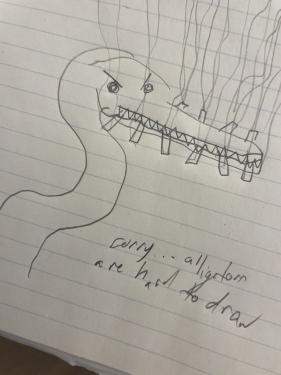 curry... alligators
are hard to draw